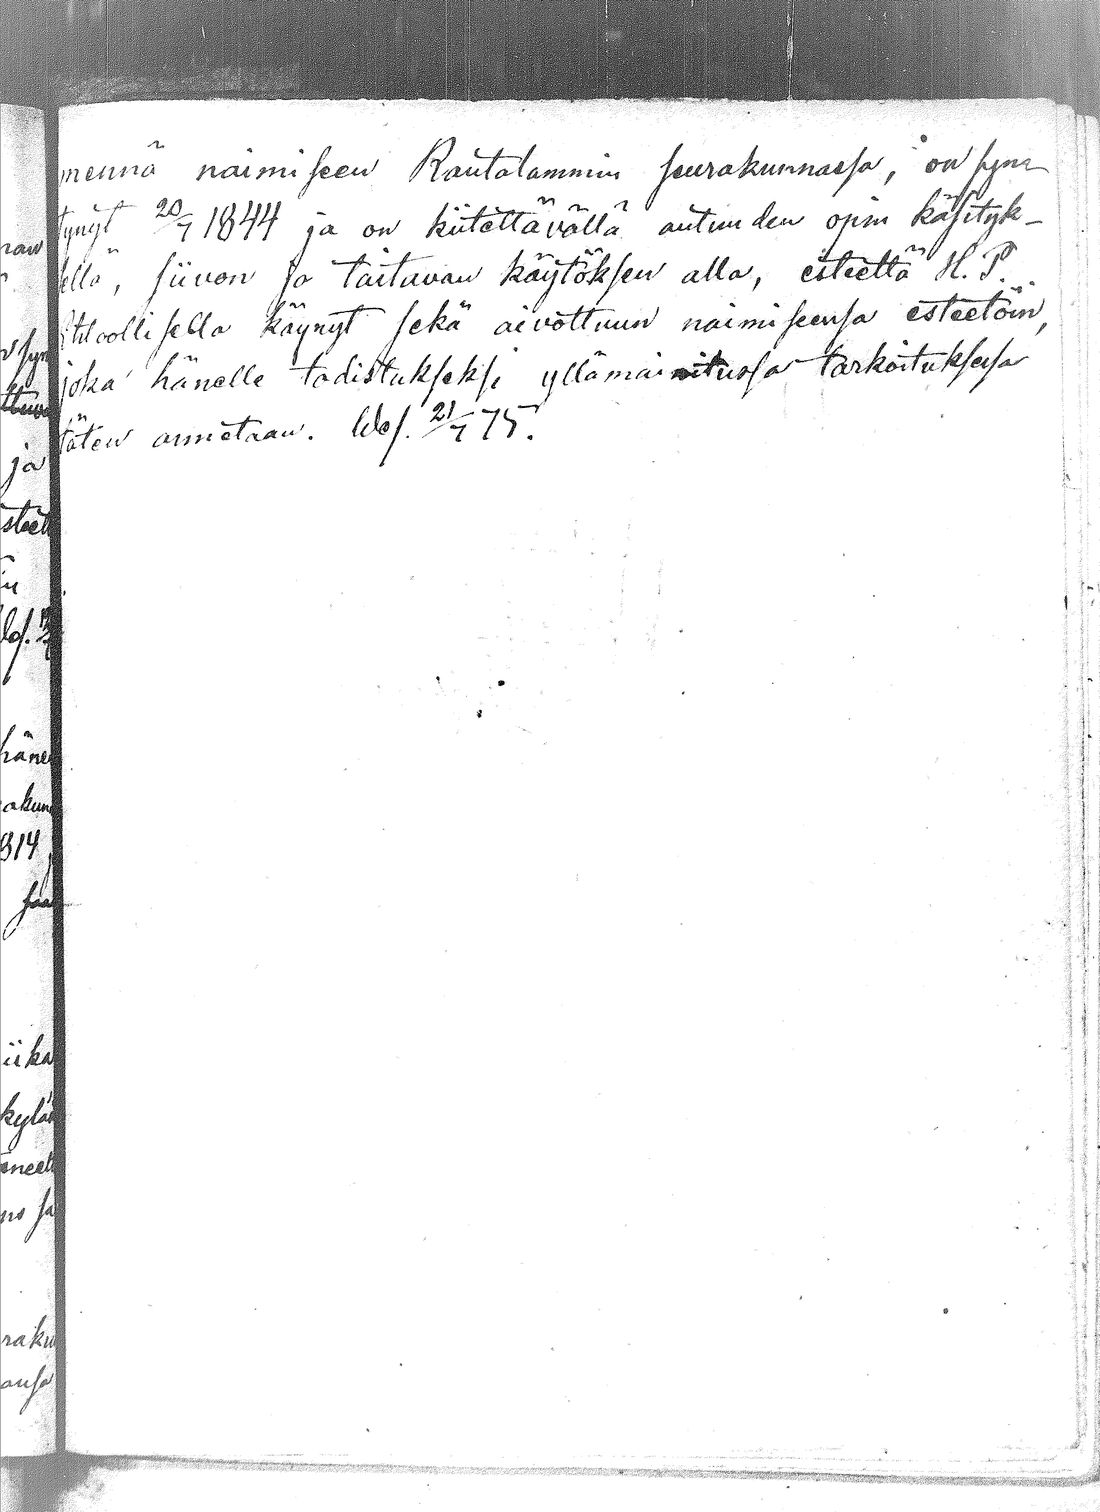 mennä naimiseen Rautalammin seurakunnassa, on syn-
tynyt 20/7 1844 ja on kiitettävällä autuuden opin käsityk-
sellä, siivon ja taitavan käytöksen alla, esteettä H. P.
Ehtoollisella käynyt sekä aivottuun naimiseensa esteetöin,
joka hänelle todistukseksi yllämainitussa tarkoituksessa
täten annetaan. Wes. 21/7 75.
ja
814